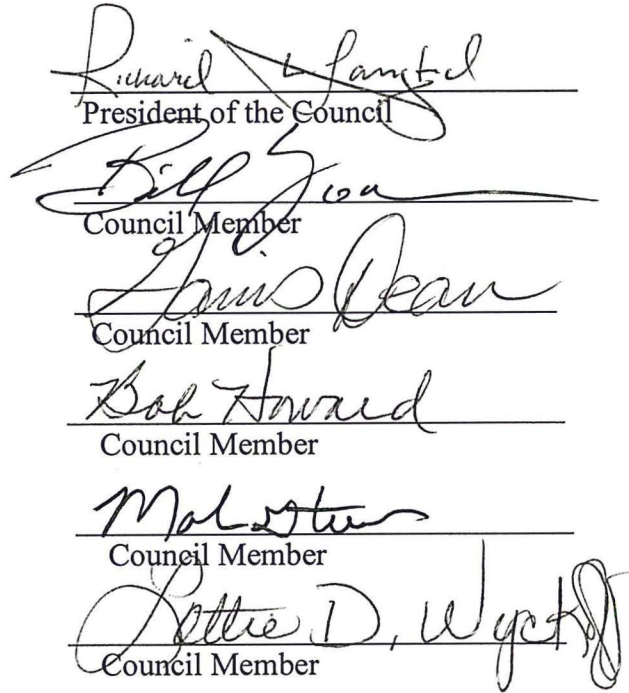 Richard
President of the Council
Bill
Council Member
Dean
Council Member
Bob Howard
Council Member
Council Member
Lottie D. Wyckoff
Council Member